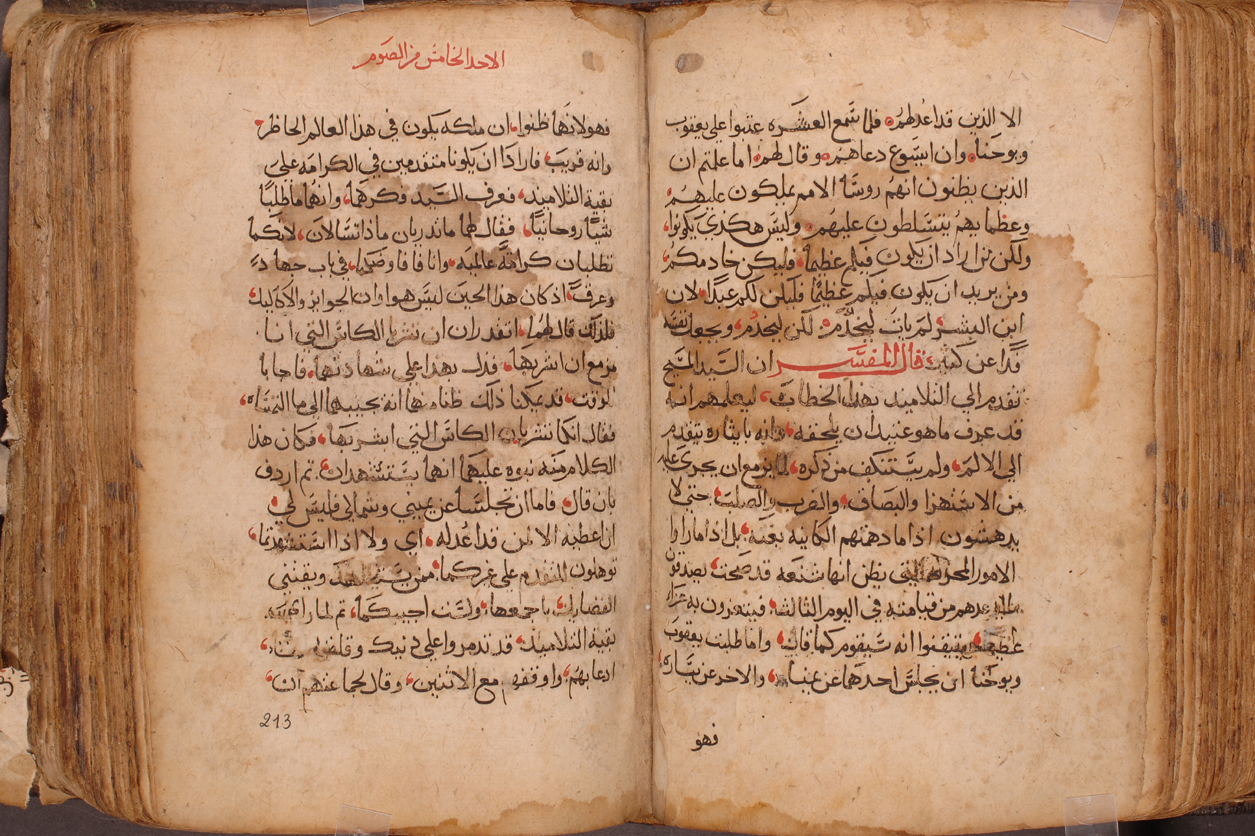 الا الذين قد اعدلهم فلما سمع العشره عتبوا على يعقوب
ويوحنا وان ايسوع دعاهم وقال لهم اما علمتم ان
الذين يظنون انهم روسا الامم يملكون عليهم
وعظما بهم يتسلطون عليهم وليس هكذي يكونوا
ولكن من اراد ان يكون فيكم عظيما فليكن خادمكم
ومن يريد ان يكون فيكم عظيما فليكن لكم عبدا لان
ابن البشر لم يات ليخدم لكن ليخدم ويجعل نفسه
فدا عن كثير قال المفسر ان السيد المسيح
تقدم الي التلاميد بهذا الخطاب ليعلمهم انه
قد عرف ما هو عتيد ان يلحقه وانه بايثاره يتقدم
الى الالم ولم يستنكف من ذكره لما يزمع ان يجري عليه
من الاستهزا والبصاق والضرب والصلب حتى لا
يدهشون اذا ما دهمتهم الكاينه بغتة بل اذا ما راوا
الامور المحزنه التي يظن انها شنعه قد صحت يصدقو
من قيامته في اليوم الثالث فيتعزون به عزاء
عظيما ويتيقنوا انه سيقوم كما قال واما طلبت يعقوب
ويوحنا ان يجلس احدهما عن يمينه والاخر عن يساره
فهو
الاحد الخامس من الصوم
فهو لانهما ظنوا ان ملكه يكون في هذا العالم الحاظر
وانه قريب فارادا ان يكونا متقدمين في الكرامه على
بقية التلاميد فعرف السيد فكرهما وانهما ما طلبا
شيا روحانيا فقال لهما ما تدريان ما ذا تسالان لانكما
تطلبان كرامة عالميه وانا فافاوضكما في باب جهاد
وعرق اذ كان هذا الحين ليس هو اوان الجوايز والاكاليل
فلذلك قال لهما اتقدران ان تشربا الكاس التي انا
مزمع ان اشربها فدل بهذا على شهادتهما فاجابا
للوقت قد يمكنا ذلك ظنا منها انه يجيبهما الى ما التمساه
فقال انكما تشربان الكاس التي اشربها فكان هذا
الكلام منه نبوه عليهما انهما يستشهدان ثم اردف
بان قال فاما ان تجلسا عن يميني وشمالي فليس لي
ان اعطيه الا لمن قد اعد له اي ولا اذا استشهدتما
توهلون للتقدم على غيركما ممن ويقتني
الفضايل باجمعها ولست اجيبكما ثم لما راى
بقية التلاميد قد تدمروا على ذنيك وقلقوا
دعاهم واوقفهم مع الاثنين وقال لجماعتهم ان
213